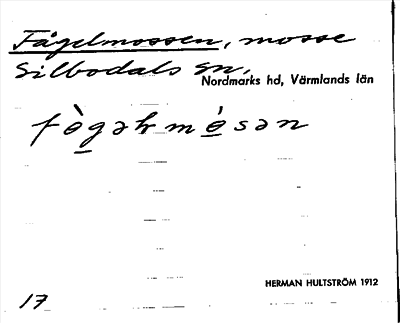 Fågelmossen, mosse
Silbodals sn,
Nordmarks hd, Värmlands län
fò̲gəhmó̲sən
HERMAN HULTSTRÖM 1912
17